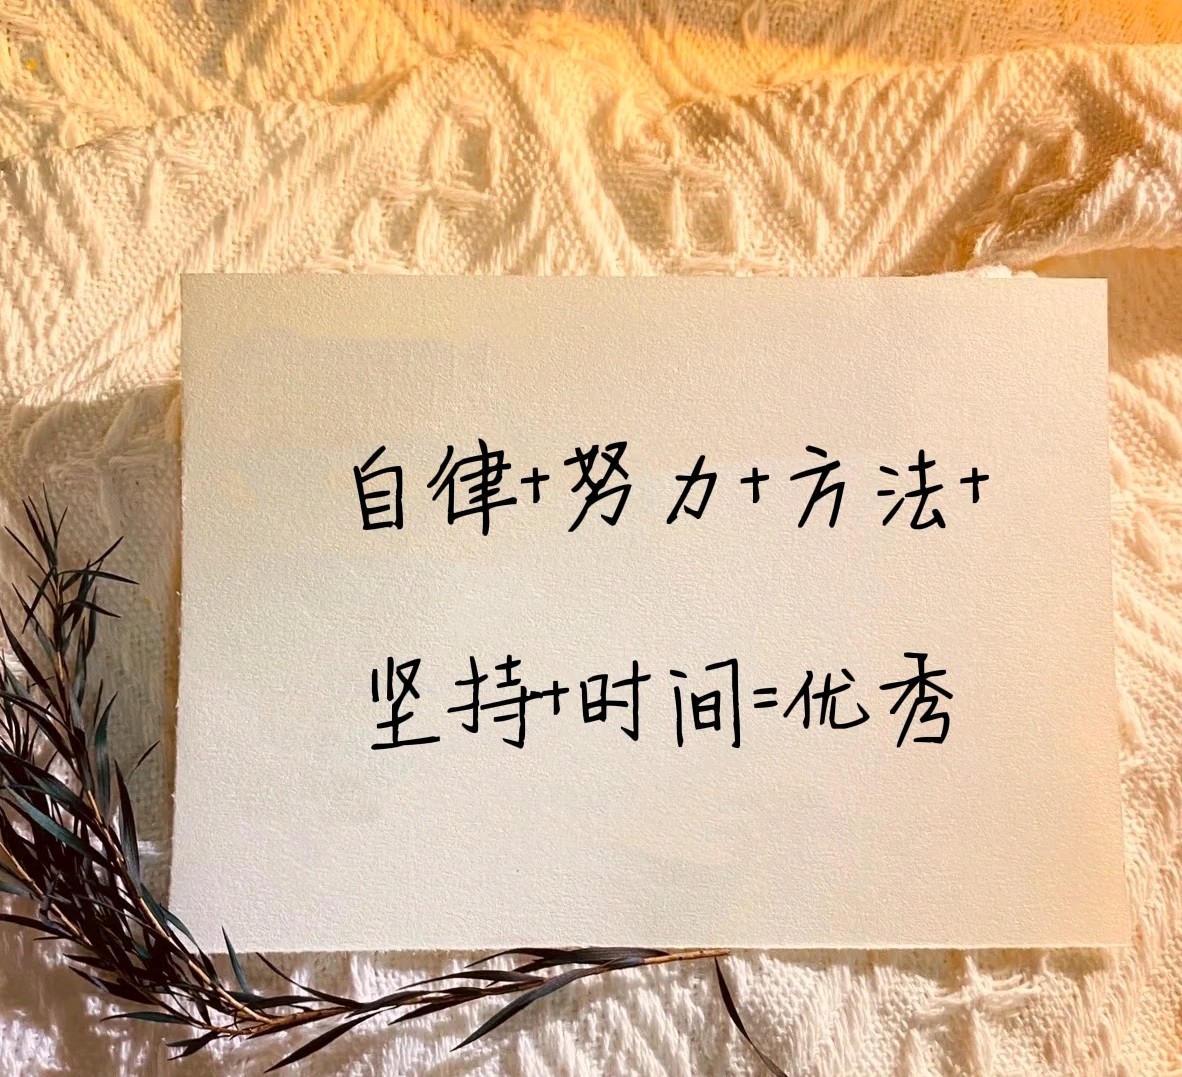 自律+努力+方法+
坚持+时间=优秀